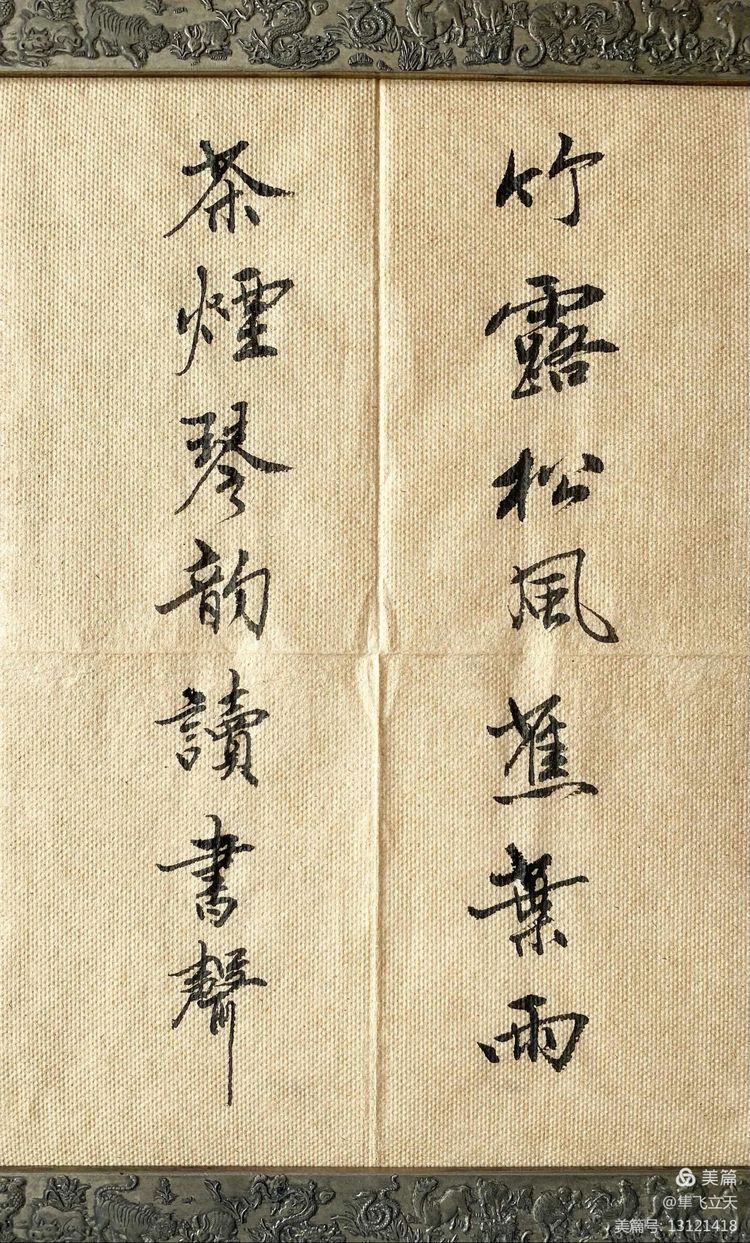 竹露松風蕉葉雨
茶煙琴韵讀書聲
美篇
@隼飞立天
美篇号: 13121418